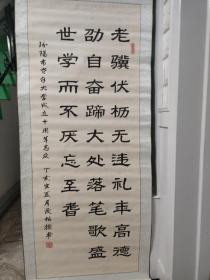 老骥伏枥无违礼年高德
劭自奋蹄大处落笔歌盛
世学而不厌忘至耆
汾阳市老年大学成立十周年志庆
丁亥